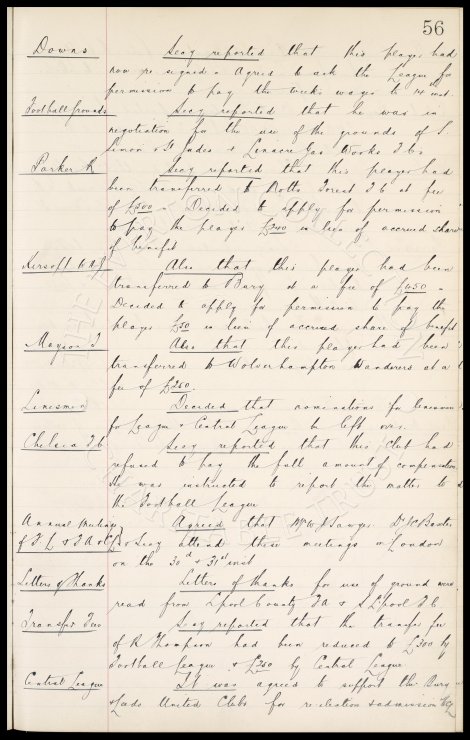 56
Downs Secy reported that this player had
now re-signed. Agreed to ask the League for
permission to pay the weeks wages to 14 inst.
Football Grounds Secy reported that he was in
negotiation for the use of the grounds of S.
Simon & St Judes & Linacre Gas Works F.Cs.
Parker R Secy reported that this player had
been transferred to Notts Forest F C at fee
of £500. Decided to apply for permission
to pay the player £240 in lieu of accrued share
of benefit
Also that this player had been
transferred to Bury at a fee of £450.
Decided to apply for permission to pay the
player £50 in lieu of accrued share of benefit
Mayson T Also that this player had been
transferred to Wolverhampton Wanderers at a
fee of £250.
Linesmen Decided that nominations for Linesmen
for League & Central League be left over.
Chelsea F.C Secy reported that this Club had
refused to pay the full amount of compensation
He was instructed to report the matter to
the Football League
Annual Meetings Agreed that Mr W J Sawyer Dr J C Baxter
of F.L & F A & Secy attend these meetings in London
on the 30th & 31st inst
Letters of Thanks Letters of thanks for use of ground were
read from Lpool County FA & S Lpool F.C.
Transfer Fees Secy reported that the transfer fee
of R Thompson had been reduced to £300 by
Football League & £250 by Central League.
Central League It was agreed to support the Bury
& Leeds United Clubs for re-election & admission